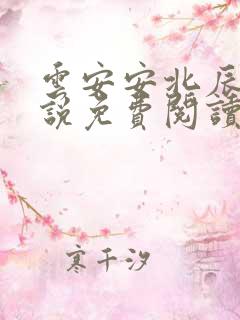 雲安安北辰
說免費閱讀
寒千汐